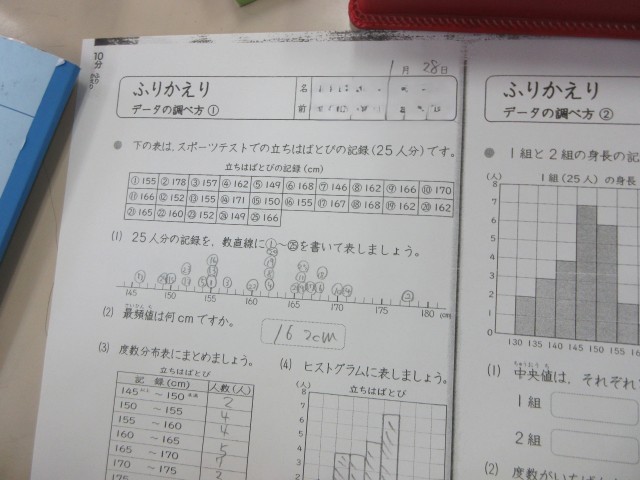 10分
1月 28日
ふりかえり
データの調べ方 ①
名前
● 下の表は、スポーツテストでの立ちはばとびの記録(25人分)です。
立ちはばとびの記録(cm)
① 155 ② 178 ③ 157 ④ 162 ⑤ 149 ⑥ 168 ⑦ 146 ⑧ 162 ⑨ 166 ⑩ 170
⑪ 166 ⑫ 152 ⑬ 155 ⑭ 171 ⑮ 150 ⑯ 155 ⑰ 167 ⑱ 168 ⑲ 162 ⑳ 162
㉑ 165 ㉒ 160 ㉓ 152 ㉔ 149 ㉕ 166
(1) 25人分の記録を、数直線に①~㉕を書いて表しましょう。
145 150 155 160 165 170 175 180 (cm)
(2) 最頻値は何cmですか。
162cm
(3) 度数分布表にまとめましょう。
立ちはばとび
記録(cm) 人数(人)
145以上 ~ 150未満 2
150 ~ 155 4
155 ~ 160 4
160 ~ 165 5
165 ~ 170 7
170 ~ 175
175
(4) ヒストグラムに表しましょう。
(人) 立ちはばとび
8
7
6
5
4
ふりかえり
データの調べ方 ②
● 1組と2組の身長の記
(人) 1組(25人)の身長
8
7
6
5
4
3
2
1
0
130 135 140 145 150 155
(1) 中央値は、それぞれ
1組
2組
(2) 度数がいちば